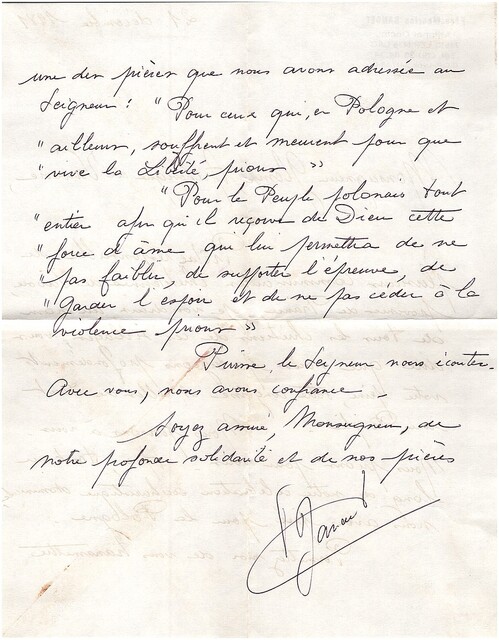 une des prières que nous avons adressée au
Seigneur : " Pour ceux qui, en Pologne et
" ailleurs, souffrent et meurent pour que
" vive la Liberté, prions »
" Pour le Peuple polonais tout
" entier afin qu'il reçoive de Dieu cette
" force d'âme qui lui permettra de ne
" pas faiblir, de supporter l'épreuve, de
" garder l'espoir et de ne pas céder à la
violence prions »
Puisse le Seigneur nous écouter.
Avec vous, nous avons confiance.
Soyez assuré, Monseigneur, de
notre profonde solidarité et de nos prières